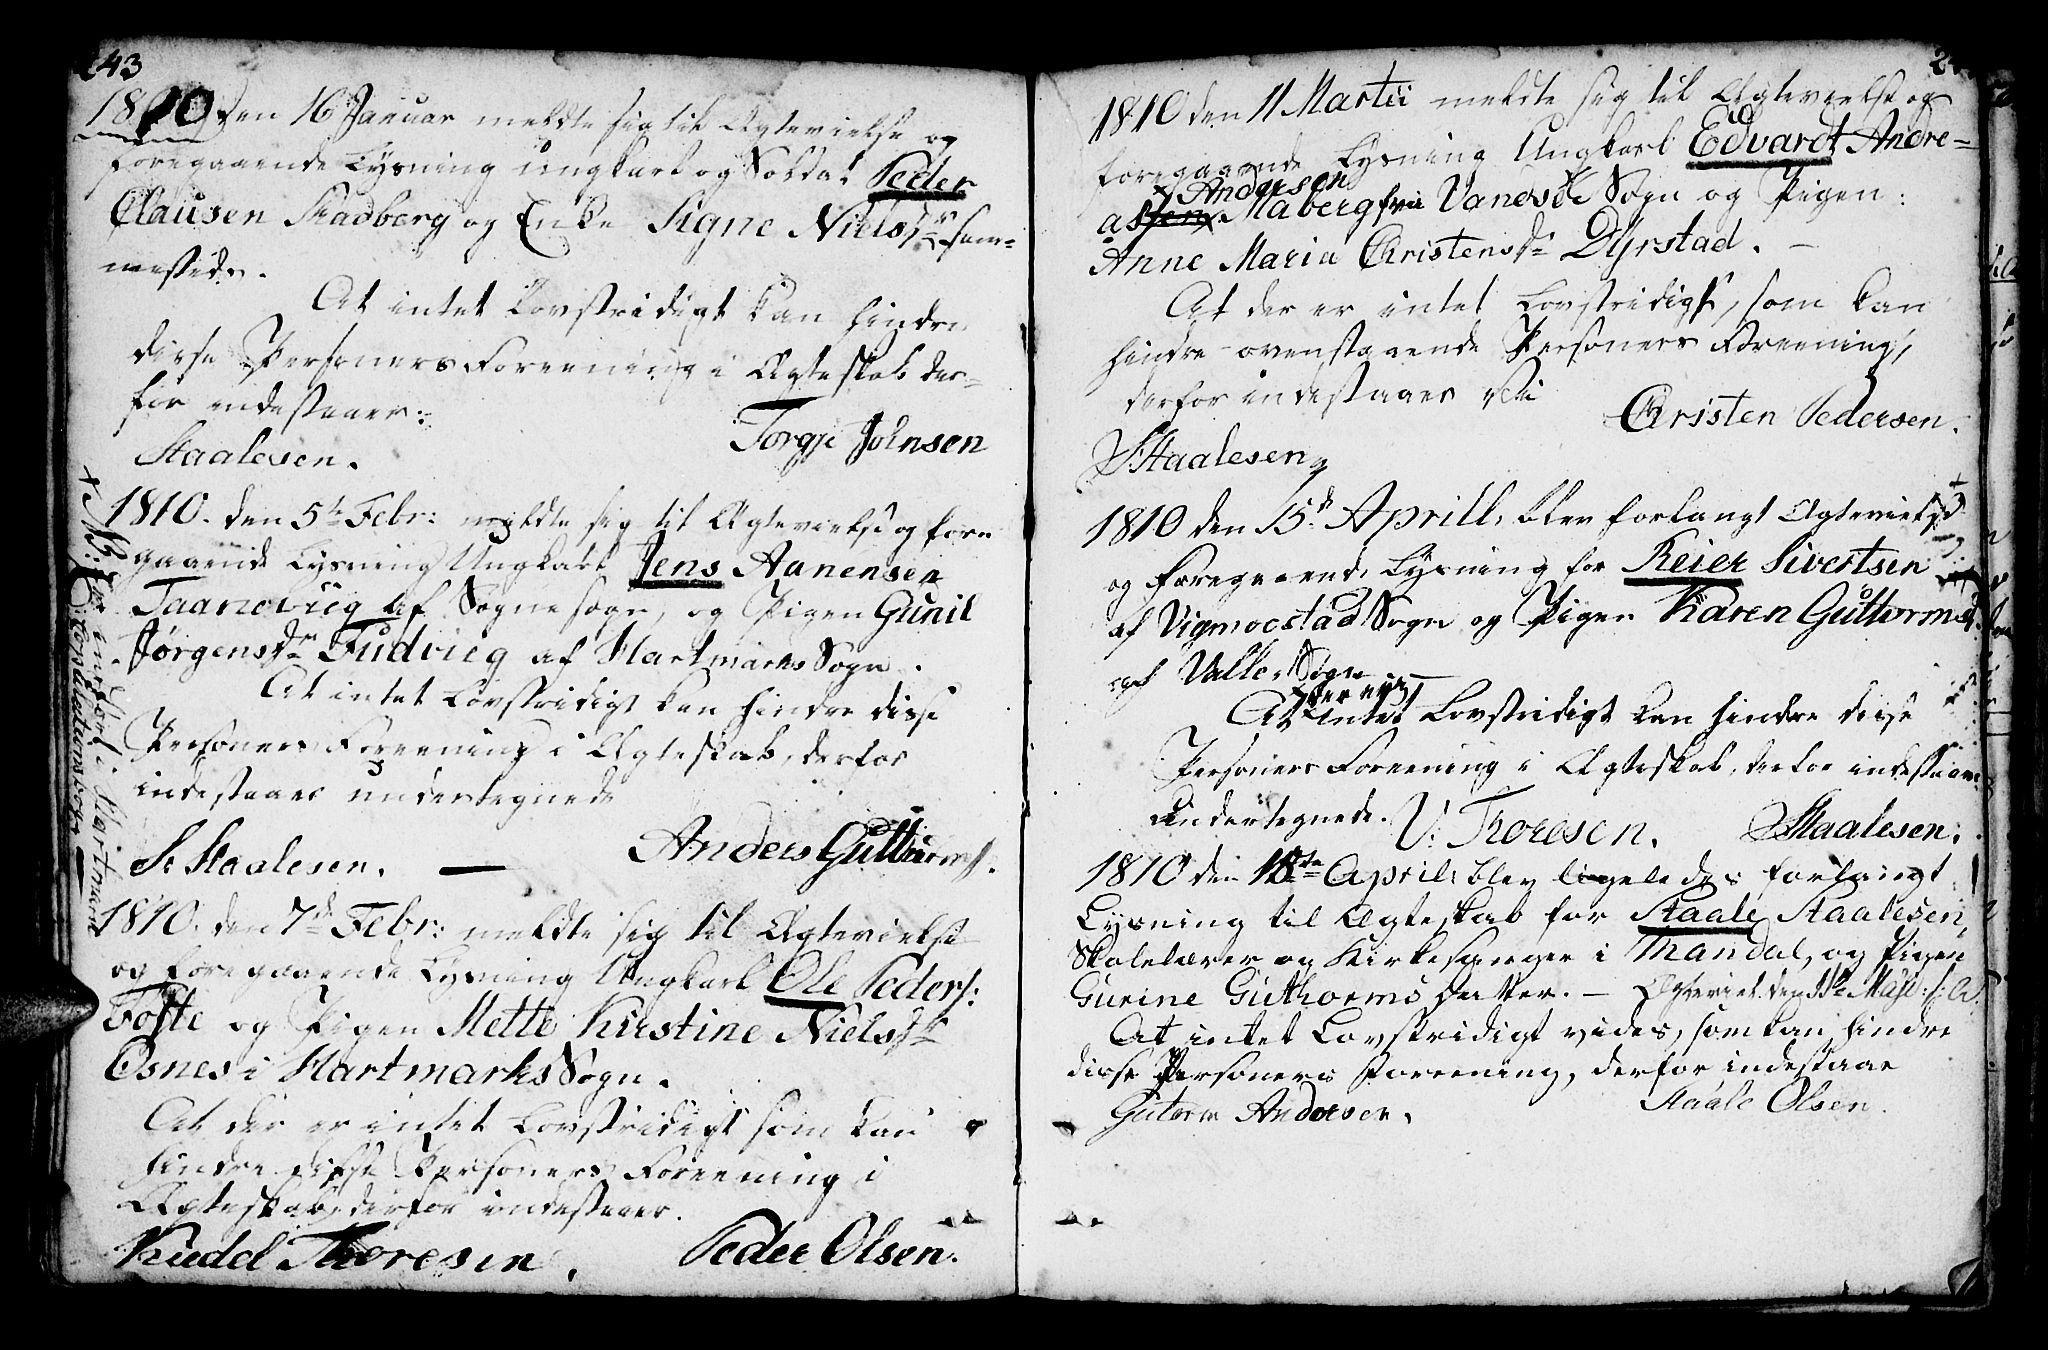 243
1810 Den 16 Januar meldte sig til Ægtevielse og
foregaaende Lysning ungkarl og Soldat Peder
Clausen Stadberg og Enke Signe Nielsdr sam-
mestedr.
At intet Lovstridigt kan hindre
disse Personers Foreening i Ægteskab der-
for indestaaer:
Staalesen. Torgje Johnsen
1810. den 5te Febr: meldte sig til Ægtevielse og fore
gaaende Lysning Ungkarl Jens Aanensen
Taaneviig af Sogne sogn, og Pigen Gunil
Jørgensdr Fudviig af Hartmarks Sogn.
At intet Lovstridigt kan hindre disse
Personers Foreening i Ægteskab, derfor
indestaaer undertegnede
St Staalesen. — Anders Guttorms.
1810. den 7de Febr: meldte sig til Ægtevielse
og foregaaende Lysning Ungkarl Ole Peders:
Foste og Pigen Mette Kirstine Nielsdr
Osnes i Hartmarks Sogn.
At der er intet Lovstridigt som kan
hindre disse Personers Foreening i
Ægteskab, derfor indestaaer.
Knudd Thoresen, Peder Olsen.
x NB: indført i Hartmark
Copulationsbog
24
1810 den 11 Martii meldte sig til Ægtevielse og
foregaaende Lysning Ungkarl Edvardt Andre-
Andersen
assen Maberg fra Vandsøe Sogn og Pigen:
Anne Maria Christensdr Dyrstad. —
At der er intet Lovstridigt, som kan
hindre ovenstaaende Personers Foreening,
derfor indestaaer Vi
Christen Pedersen.
SStaalesen
1810 den 15de Aprill, blev forlangt Ægtevielse
og Foregaaende Lysning for Reier Sivertsen
af Vigmoestad Sogn og Pigen Karen Guttormsd.
af Valle Sogn
At intet Lovstridigt kan hindre disse
Personers Foreening i Ægteskab, derfor indestaaer
Undertegnede. V: Thoresen. SStaalesen.
1810 den 18te April, blev ligeledes forlangt
Lysning til Ægteskab for Staale Staalesen,
Skolelærer og Kirkesanger i Mandal, og Pigen
Gurine Guthorms Datter. — Ægteviet den Maji
At intet Lovstridigt vides, som kan hindre
disse Personers Foreening, derfor indestaaer
Gutorm Andersen. Staale Olsen.